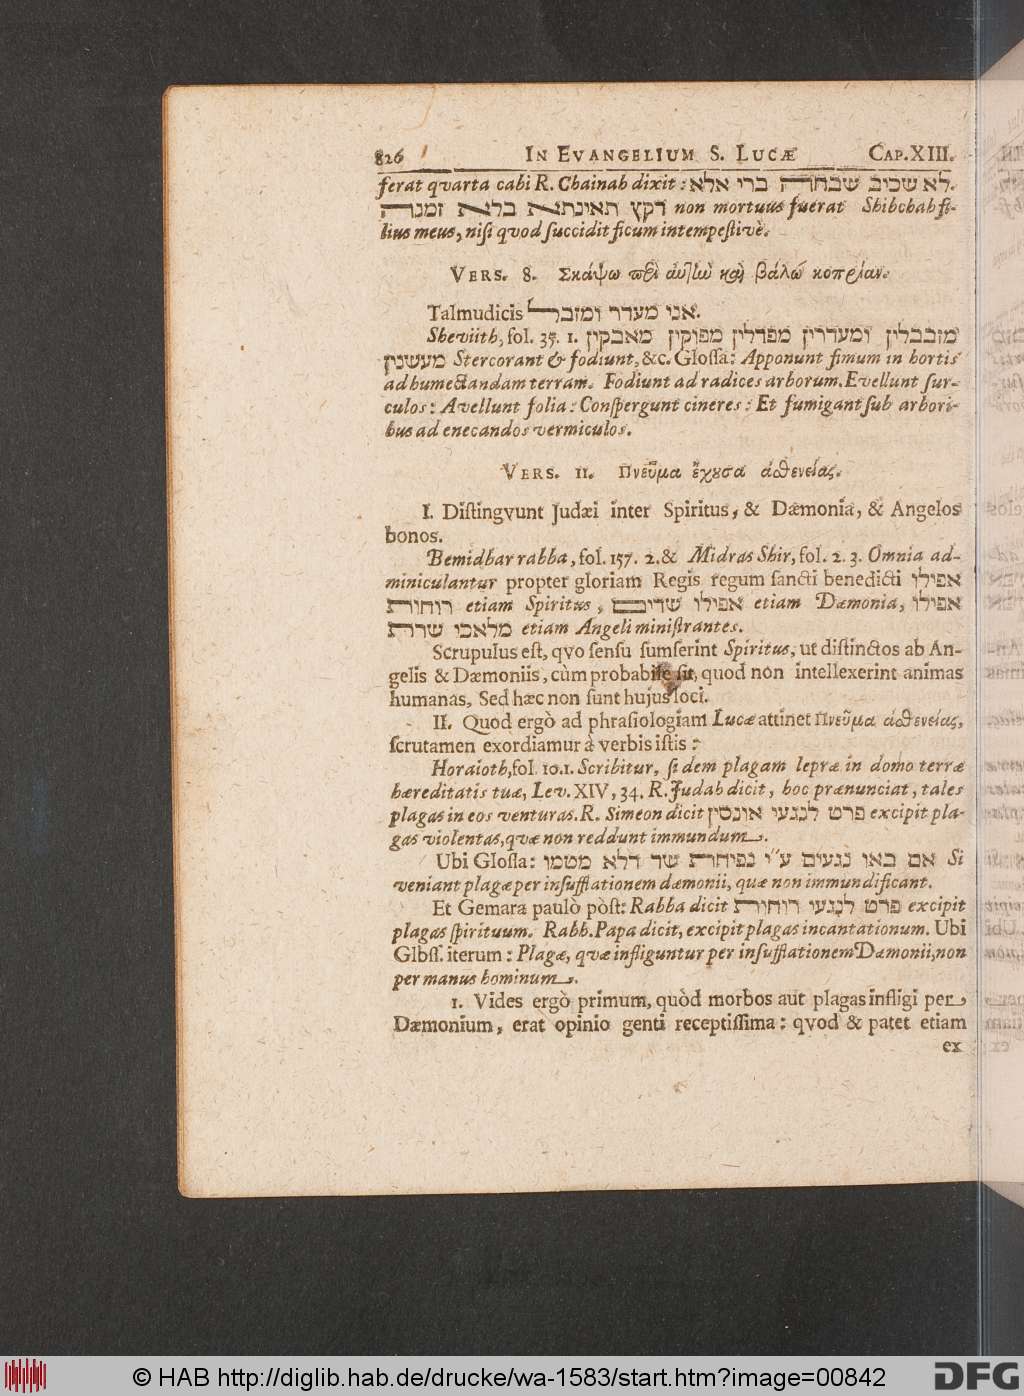 826 IN EVANGELIUM S. LUCÆ CAP. XIII.
ferat qvarta cabi R. Chainah dixit: לא שכיב שבחה ברי אלא
דקץ תאינתא בלא זמנה non mortuus fuerat Shibchah fi-
lius meus, nisi qvod succidit ficum intempestivè.
VERS. 8. Σκάψω περὶ αυτὼ καὶ βάλω κοπρίαν.
Talmudicis אני מעדר ומזבל.
Sheviith, fol. 35. 1. מזבבלין ומעדרין מפדלין מפוקין מאבקין
מעשנין Stercorant & fodiunt, &c. Glossa: Apponunt fimum in hortis
ad humectandam terram. Fodiunt ad radices arborum. Evellunt sur-
culos: Avellunt folia: Conspergunt cineres: Et fumigant sub arbori-
bus ad enecandos vermiculos.
VERS. 11. Πνεῦμα ἔχουσα ἀσθενείας.
I. Distingvunt Judæi inter Spiritus, & Dæmonia, & Angelos
bonos.
Bemidbar rabba, fol. 157. 2. & Midras Shir, fol. 2. 3. Omnia ad-
miniculantur propter gloriam Regis regum sancti benedicti אפילו
רוחות etiam Spiritus, אפילו שדים etiam Dæmonia, אפילו
מלאכי שרת etiam Angeli ministrantes.
Scrupulus est, qvo sensu sumserint Spiritus, ut distinctos ab An-
gelis & Dæmoniis, cùm probabile sit, quod non intellexerint animas
humanas, Sed hæc non sunt hujus loci.
II. Quod ergò ad phrasiologiam Lucæ attinet Πνεῦμα ἀσθενείας,
scrutamen exordiamur à verbis istis:
Horaioth, fol. 10. 1. Scribitur, si dem plagam lepræ in domo terræ
hæreditatis tuæ, Lev. XIV, 34. R. Judah dicit, hoc prænunciat, tales
plagas in eos venturas. R. Simeon dicit פרט לנגעי אונסין excipit pla-
gas violentas, qvæ non reddunt immundum.
Ubi Glossa: אם באו נגעים ע״י נפיחות שד דלא מטמו Si
veniant plagæ per insufflationem dæmonii, quæ non immundificant.
Et Gemara paulò pòst: Rabba dicit פרט לנגעי רוחות excipit
plagas spirituum. Rabb. Papa dicit, excipit plagas incantationum. Ubi
Gloss. iterum: Plagæ, qvæ infliguntur per insufflationem Dæmonii, non
per manus hominum.
1. Vides ergò primum, quòd morbos aut plagas infligi per
Dæmonium, erat opinio genti receptissima: qvod & patet etiam
ex
© HAB http://diglib.hab.de/drucke/wa-1583/start.htm?image=00842 DFG